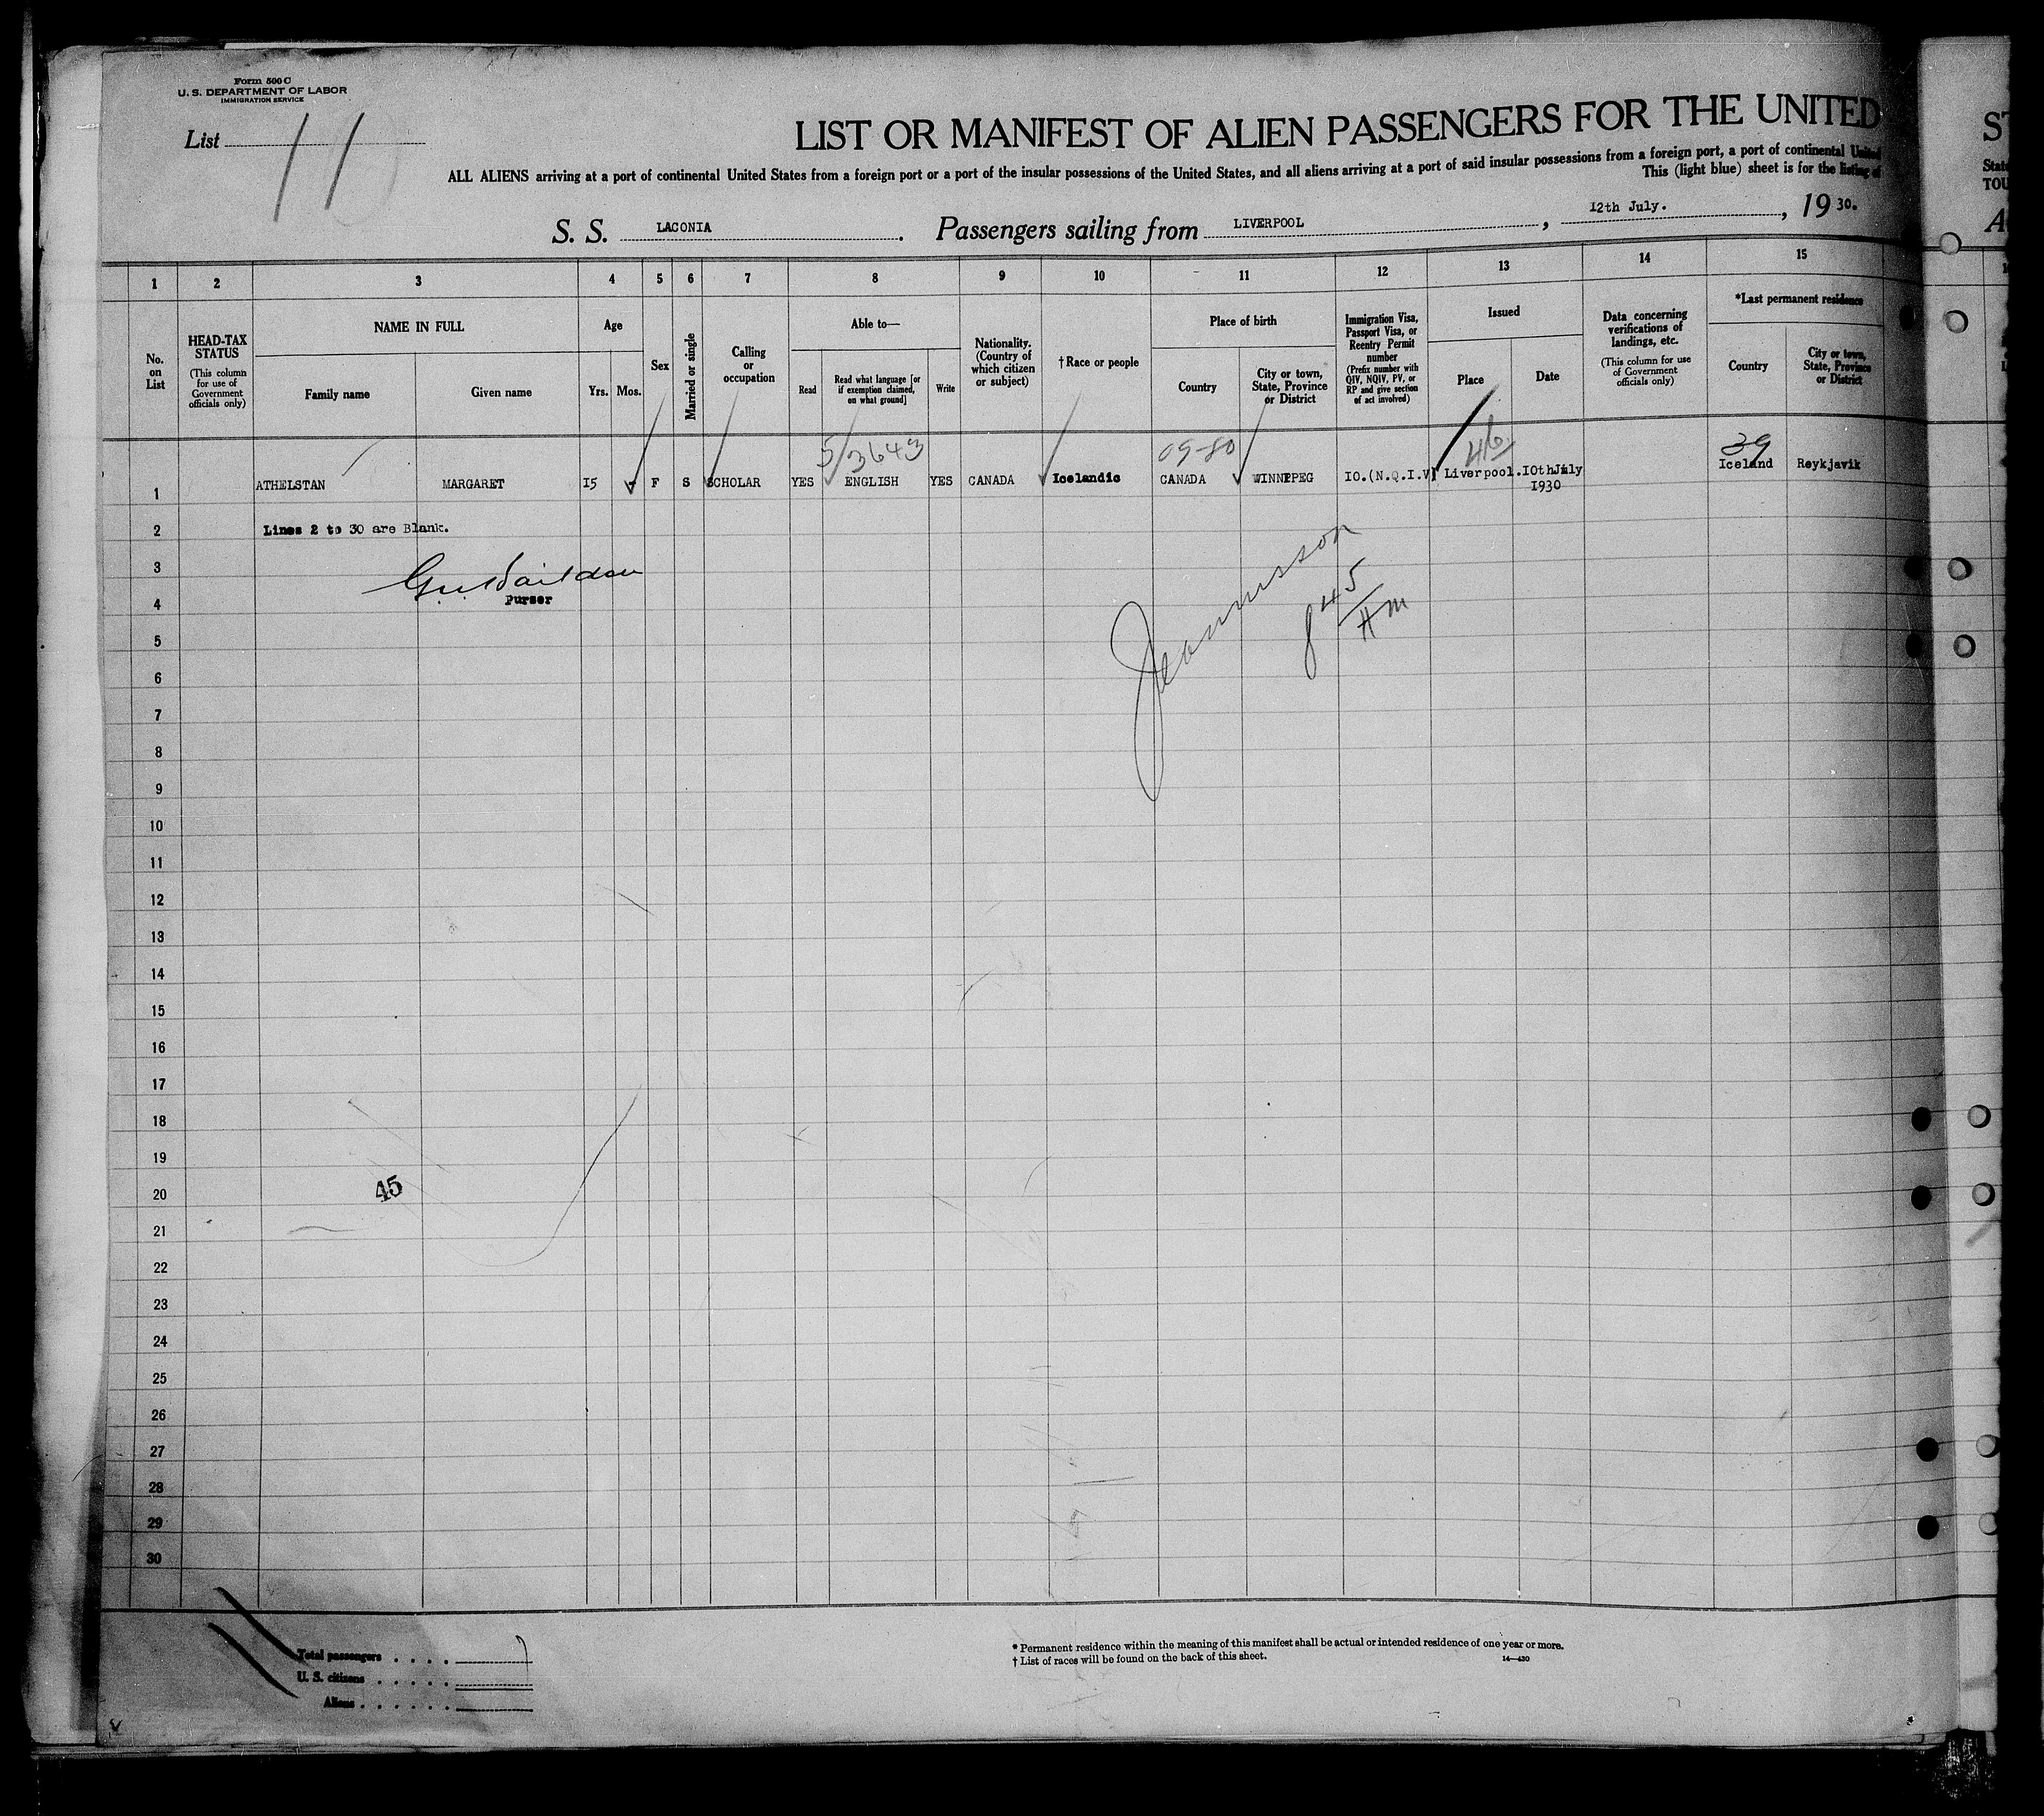 Form 500 C
U. S. DEPARTMENT OF LABOR
IMMIGRATION SERVICE
List 11
LIST OR MANIFEST OF ALIEN PASSENGERS FOR THE UNITED
ALL ALIENS arriving at a port of continental United States from a foreign port or a port of the insular possessions of the United States, and all aliens arriving at a port of said insular possessions from a foreign port, a port of continental United
This (light blue) sheet is for the listing of
S. S. LACONIA. Passengers sailing from LIVERPOOL, 12th July., 1930.
ST
State
TOU
1 2 3 4 5 6 7 8 9 10 11 12 13 14 15
No. on List
HEAD-TAX STATUS
(This column for use of Government officials only)
NAME IN FULL
Family name
Given name
Age
Yrs.
Mos.
Sex
Married or single
Calling or occupation
Able to—
Read
Read what language [or if exemption claimed, on what ground]
Write
Nationality. (Country of which citizen or subject)
†Race or people
Place of birth
Country
City or town, State, Province or District
Immigration Visa, Passport Visa, or Reentry Permit number
(Prefix number with QIV, NQIV, PV, or RP and give section of act involved)
Issued
Place
Date
Data concerning verifications of landings, etc.
(This column for use of Government officials only)
*Last permanent residence
Country
City or town, State, Province or District
5/3643 09-80 46 39
1 ATHELSTAN MARGARET I5 - F S SCHOLAR YES ENGLISH YES CANADA Icelandic CANADA WINNIPEG IO.(N.Q.I.V) Liverpool. IOthJuly Iceland Reykjavik
I930
2 Lines 2 to 30 are Blank.
3
4 Purser
5
6
7
8
9
10
11
12
13
14
15
16
17
18
19
20
45
21
22
23
24
25
26
27
28
29
30
Total passengers
U. S. citizens
Aliens
* Permanent residence within the meaning of this manifest shall be actual or intended residence of one year or more.
† List of races will be found on the back of this sheet.
14—430